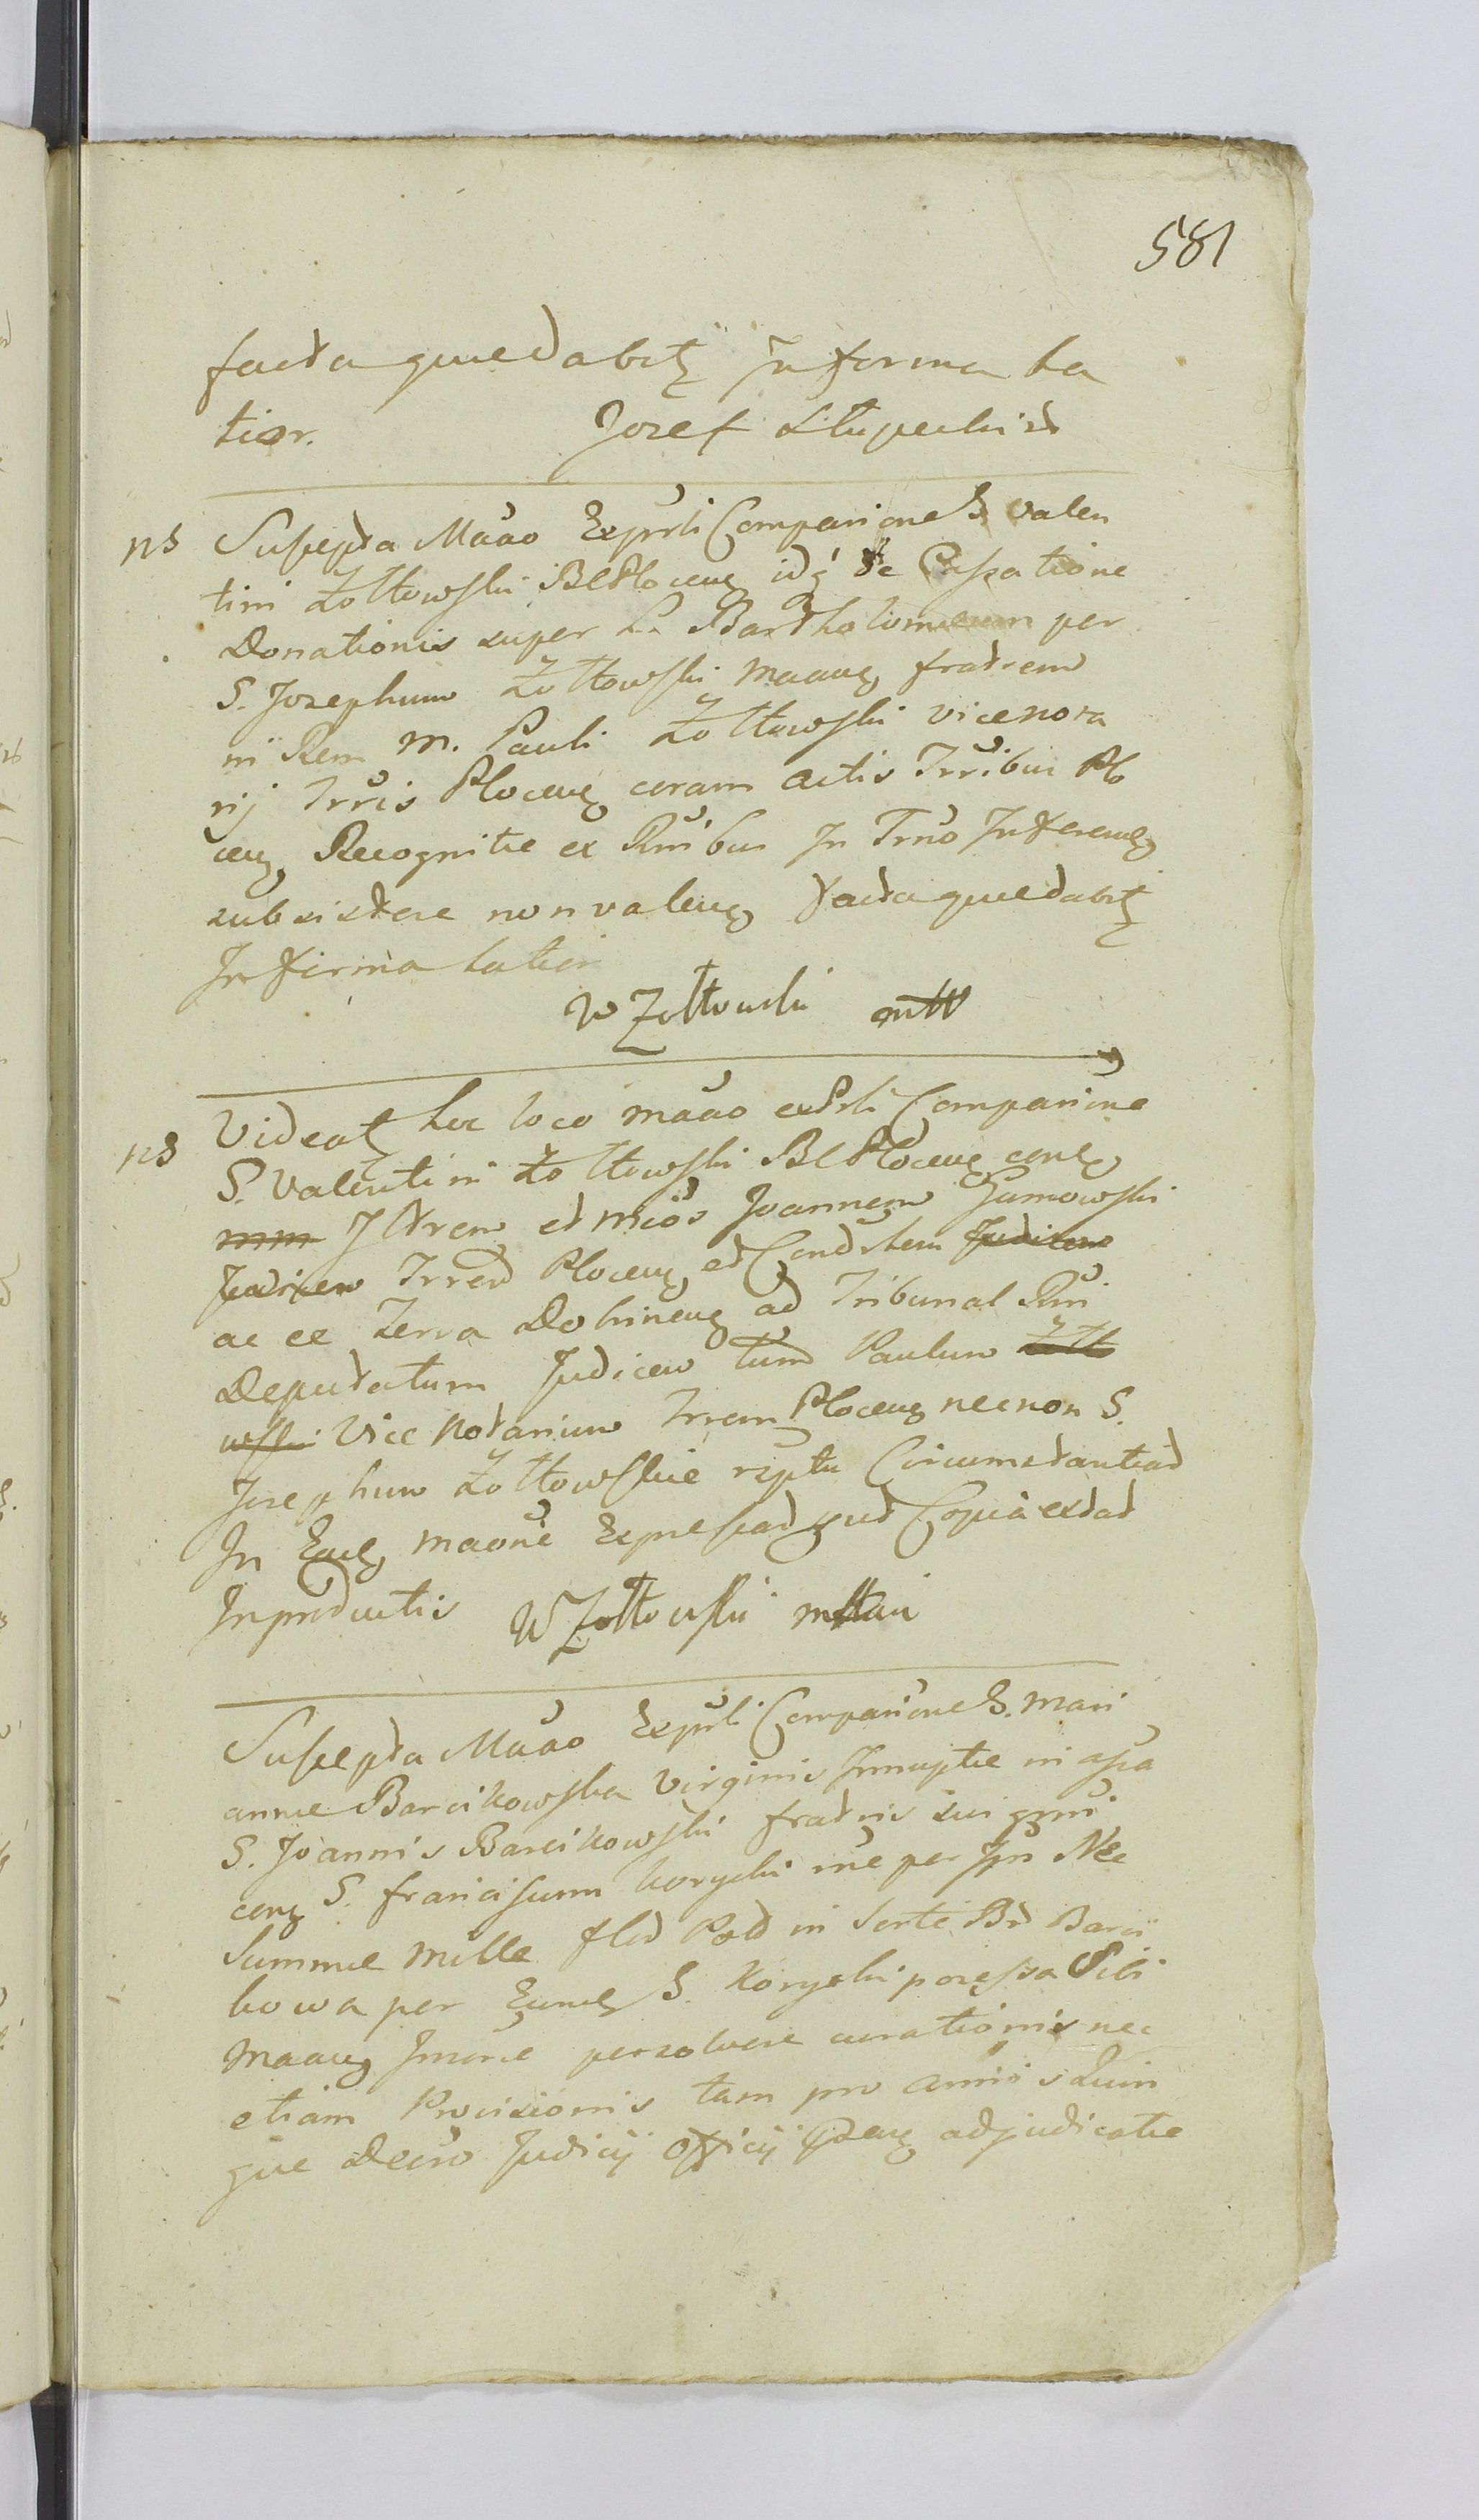 581
facta quae dabitz In forma La
tior. Jozef Słupecki
ns Suscepta Maāo Exprli Comparione S. Valen
tini Żołtowski BC Ploceng idq́ de Cassatione
Donationis super S. Bartholomeum per
S. Josephum Żołtowski maang fratrem
in Rem M. Pauli Żołtowski vicenota
rij Trris Ploceng coram actis Trribus Plo
ceng Recognitae ex Rnibus In Trno Inferendg
subsistere non valeng facta quae dabitz
In firma latior
W Żołtowski
ns Videatz hoc loco maāo exPrli Comparione
S. Valentini Żołtowski BC Ploceng cong
Illrem et mcos Joannem Gumowski
Judicem Trrem Ploceng et
ac ex Terra Dobrineng ad Tribunal Rni
Deputatum Judicem tum Paulum
wski Vice Notarium Trrem Ploceng necnon S.
Josephum Żołtowskie rptu Circumstantiad
In Eadg maone Expressad put Copia extat
In productis W Żołtowski
Suscepta Maāo Exprli Comparione S. Mari
annae Barcikowska virginis Innuptae in assa
S. Joannis Barcikowski fratris sui grni
cong S. franciscum Korycki rne per Ipn Nec
Summae Mille flod Pold in Sorte Bd Barci
kowa per Eumg S. Korycki possessa Sibi
Maang Innone persolvere curationis nec
etiam Provisionis tam pro annis Quin
que Decro Judicij Officij adjudicatae